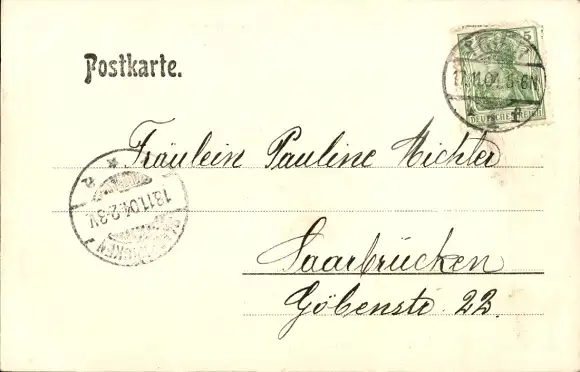 Postkarte.
5
17.11.04. 5-6N
DEUTSCHES REICH
Fräulein Pauline Michler
18.11.04. 2-3V.
Saarbrücken
Göbenstr. 22.